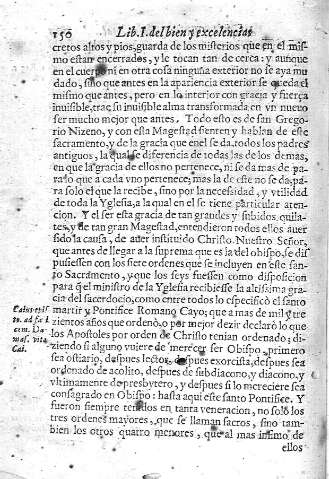 150 Lib. I. del bien y excelencias
cretos altos y pios, guarda de los misterios que en el mis-
mo estan encerrados, y le tocan tan de cerca: y aunque
en el cuerpo ni en otra cosa ninguna exterior no se aya mu
dado, sino que antes en la apariencia exterior se queda el
mismo que antes, pero en lo interior con gracia y fuerça
inuisible, trae su inuisible alma transformada en vn nueuo
ser mucho mejor que antes. Todo esto es de san Grego-
rio Nizeno, y con esta Magestad sienten y hablan de este
sacramento, y de la gracia que en el se da, todos los padres
antiguos, la qual se diferencia de todas las de los demas,
en que la gracia de ellos no pertenece, ni se da mas de pa-
ra lo que a cada vno pertenece; mas la de este no se da pa-
ra solo el que la recibe, sino por la necessidad, y vtilidad
de toda la Yglesia, a la qual en el se tiene particular aten-
cion. Y el ser esta gracia de tan grandes y subidos quila-
tes, y de tan gran Magestad, entendieron todos ellos auer
sido la causa, de auer instituido Christo Nuestro Señor,
que antes de llegar a la suprema que es la del obispo, se dis
pusiessen con los siete ordenes que se incluyen en este san-
to Sacramento, y que los seys fuessen como disposicion
para q̃ el ministro de la Yglesia recibiesse la altissima gra-
cia del sacerdocio, como entre todos lo especificò el santo
martir y Pontifice Romano Cayo; que a mas de mil y tre
zientos años que ordenò, o por mejor dezir declarò lo que
los Apostoles por orden de Christo tenian ordenado; di-
ziendo si alguno vuiere de merecer ser Obispo, primero
sea ostiario, despues lector, despues exorcista, despues sea
ordenado de acolito, despues de subdiacono, y diacono, y
vltimamente de presbytero, y despues si lo mereciere sea
consagrado en Obispo: hasta aqui este santo Pontifice. Y
fueron siempre tenidos en tanta veneracion, no solo los
tres ordenes mayores, que se llaman sacros, sino tam-
bien los otros quatro menores, que al mas infimo de
ellos
Caius epis
tem. Da
mas. vita
Cai.